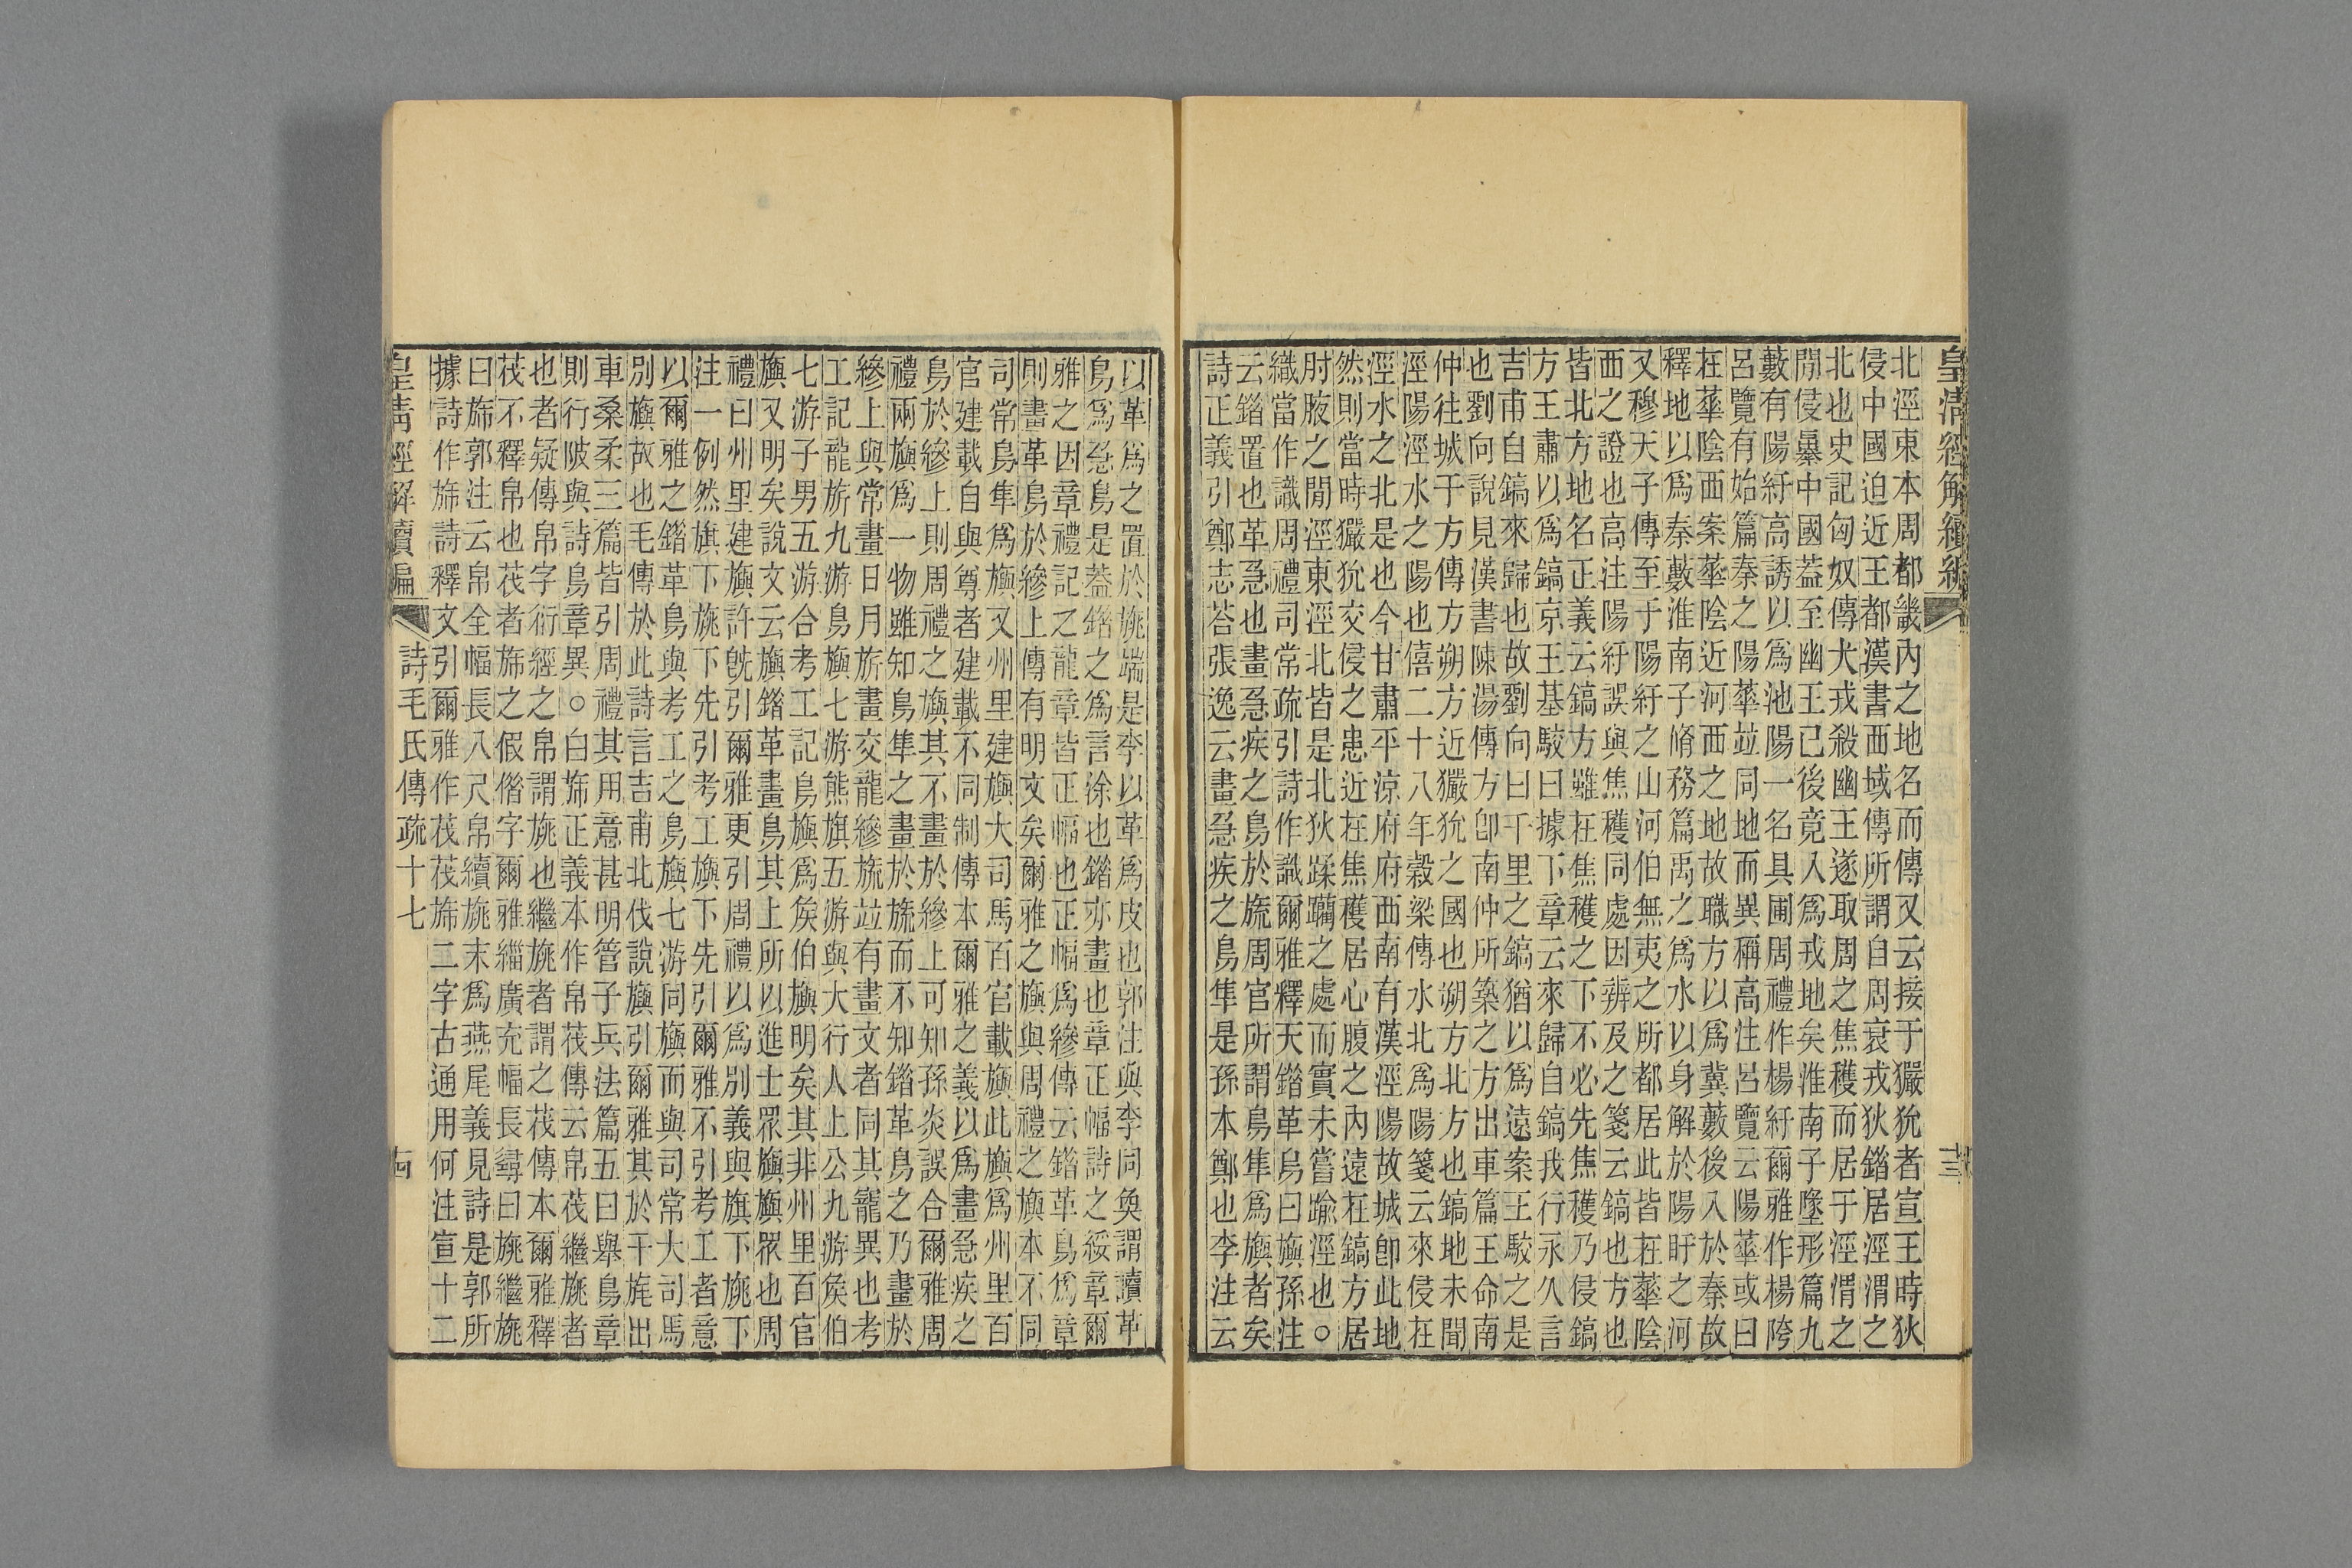 皇淸經解續編
北涇東本周都畿內之地名而傳又云接于玁狁者宣王時狄
侵中國迫近王都漢書西域傳所謂自周衰戎狄錯居涇渭之
北也史記匈奴傳犬戎殺幽王遂取周之焦穫而居于涇渭之
閒侵暴中國葢至幽王已後竟入爲戎地矣淮南子墬形篇九
藪有陽紆高誘以爲池陽一名具圃周禮作楊紆爾雅作楊陓
呂覽有始篇秦之陽華竝同地而異稱高注呂覽云陽華或曰
在華陰西案華陰近河西之地故職方以爲冀藪後入於秦故
釋地以爲秦藪淮南子脩務篇禹之爲水以身解於陽盱之河
又穆天子傳至于陽紆之山河伯無夷之所都居此皆在華陰
西之證也高注陽紆誤與焦穫同處因辨及之箋云鎬也方也
皆北方地名正義云鎬方雖在焦穫之下不必先焦穫乃侵鎬
方王肅以爲鎬京王基駮曰據下章云來歸自鎬我行永久言
吉甫自鎬來歸也故劉向曰千里之鎬猶以爲遠案王駮之是
也劉向說見漢書陳湯傳方卽南仲所築之方出車篇王命南
仲往城于方傳方朔方近玁狁之國也朔方北方也鎬地未聞
涇陽涇水之陽也僖二十八年穀梁傳水北爲陽箋云來侵在
涇水之北是也今甘肅平涼府府西南有漢涇陽故城卽此地
然則當時玁狁交侵之患近在焦穫居心腹之內遠在鎬方居
肘腋之閒涇東涇北皆是北狄蹂躪之處而實未嘗踰涇也○
織當作識周禮司常疏引詩作識爾雅釋天錯革鳥曰旟孫注
云錯置也革急也畫急疾之鳥於旒周官所謂鳥隼爲旟者矣
詩正義引鄭志荅張逸云畫急疾之鳥隼是孫本鄭也李注云
以革爲之置於旐端是李以革爲皮也郭注與李同奐謂讀革
鳥爲急鳥是葢錯之爲言涂也錯亦畫也章正幅詩之綏章爾
雅之因章禮記之龍章皆正幅也正幅爲縿傳云錯革鳥爲章
則畫革鳥於縿上傳有明文矣爾雅之旟與周禮之旟本不同
司常鳥隼爲旟又州里建旟大司馬百官載旟此旟爲州里百
官建載自與尊者建載不同制傳本爾雅之義以爲畫急疾之
鳥於縿上則周禮之旟其不畫於縿上可知孫炎誤合爾雅周
禮兩旟爲一物雖知鳥隼之畫於旒而不知錯革鳥之乃畫於
縿上與常畫日月旂畫交龍縿旒竝有畫文者同其寵異也考
工記龍旂九游鳥旟七游熊旗五游與大行人上公九游矦伯
七游子男五游合考工記鳥旟爲矦伯旟明矣其非州里百官
旟又明矣說文云旟錯革畫鳥其上所以進士眾旟旟眾也周
禮曰州里建旟許旣引爾雅更引周禮以爲別義與旗下旐下
注一例然旗下旐下先引考工旟下先引爾雅不引考工者意
以爾雅之錯革鳥與考工之鳥旟七游同旟而與司常大司馬
別旟故也毛傳於此詩言吉甫北伐說旟引爾雅其於干旄出
車桑柔三篇皆引周禮其用意甚明管子兵法篇五曰舉鳥章
則行陂與詩鳥章異○白斾正義本作帛茷傳云帛茷繼旐者
也者疑傳帛字衍經之帛謂旐也繼旐者謂之茷傳本爾雅釋
茷不釋帛也茷者斾之假借字爾雅緇廣充幅長尋曰旐繼旐
曰斾郭注云帛全幅長八尺帛續旐末爲燕尾義見詩是郭所
據詩作斾詩釋文引爾雅作茷茷斾二字古通用何注宣十二
皇淸經解續編
詩毛氏傳疏十七